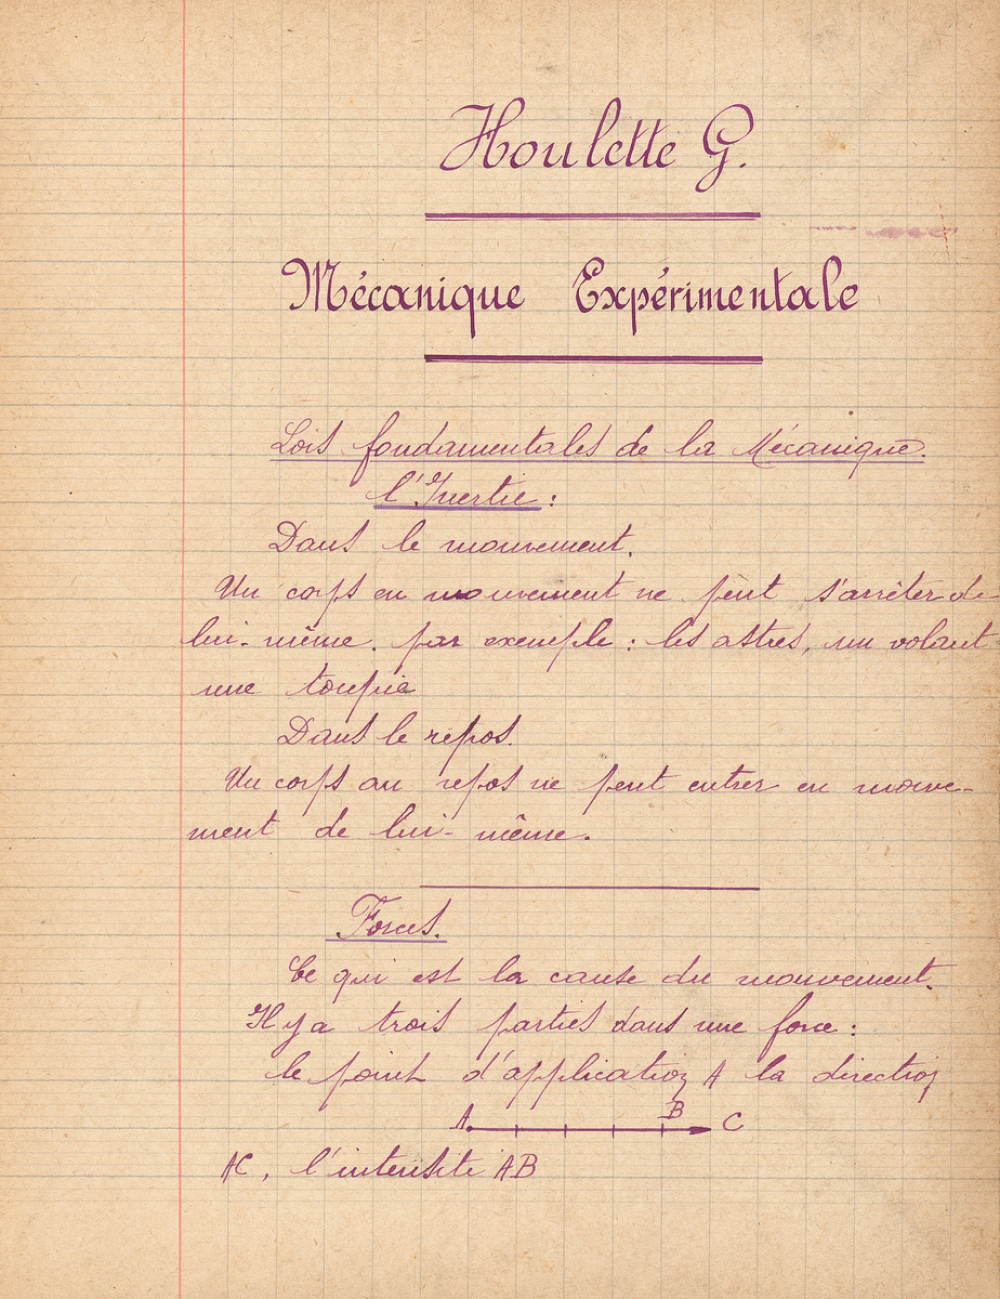 Houlette G.
Mécanique Expérimentale
Lois fondamentales de la Mécanique.
l'Inertie :
Dans le mouvement.
Un corps en mouvement ne peut s'arrêter de
lui-même. par exemple : les astres, un volant
une toupie
Dans le repos.
Un corps au repos ne peut entrer en mouve-
ment de lui-même.
Forces.
Ce qui est la cause du mouvement.
Il y a trois parties dans une force :
le point d'application A la direction
A B C
AC, l'intensité AB